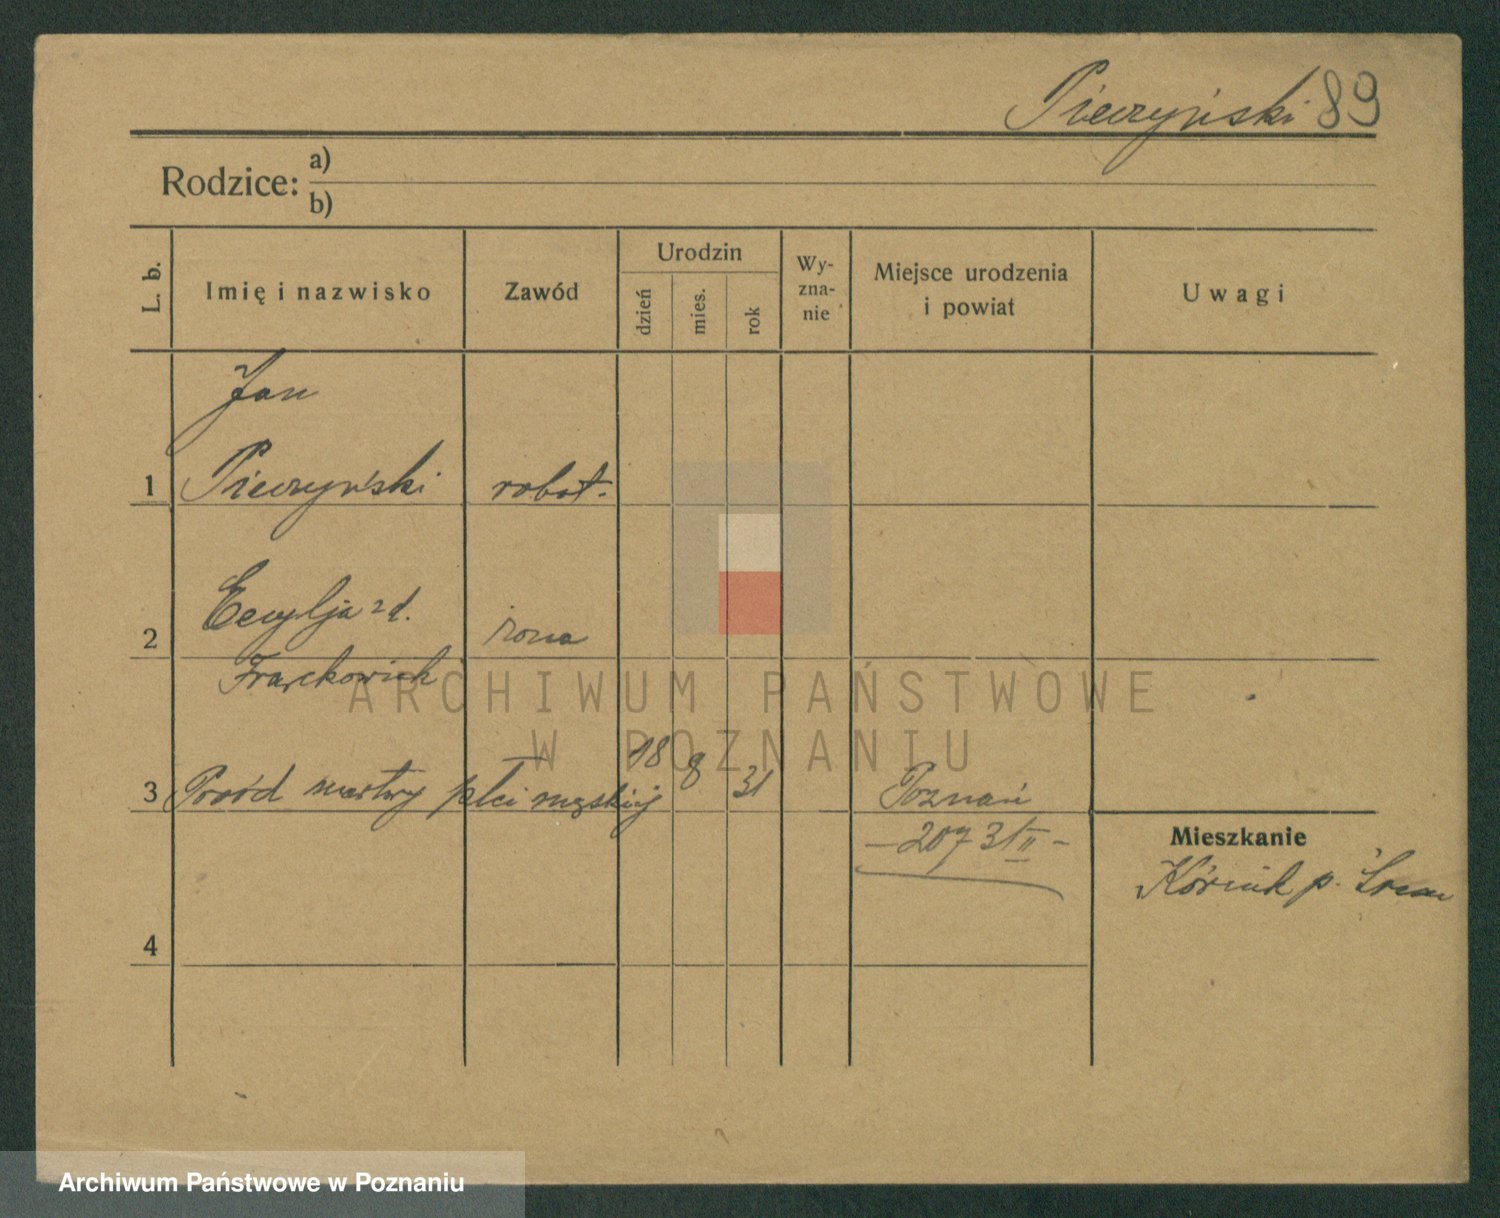 Pieczyński 89
Rodzice: a)
b)
L. b.
Imię i nazwisko
Zawód
Urodzin
dzień
mies.
rok
Wy-
zna-
nie
Miejsce urodzenia
i powiat
Uwagi
Jan
1 Pieczyński robot.
Cecylja zd.
2 żona
Frąckowiak
ARCHIWUM PAŃSTWOWE
W POZNANIU
3 Poród martwy płci męskiej 18 8 31 Poznań
Mieszkanie
- 207 31 II -
Kórnik p. Śrem
4
Archiwum Państwowe w Poznaniu